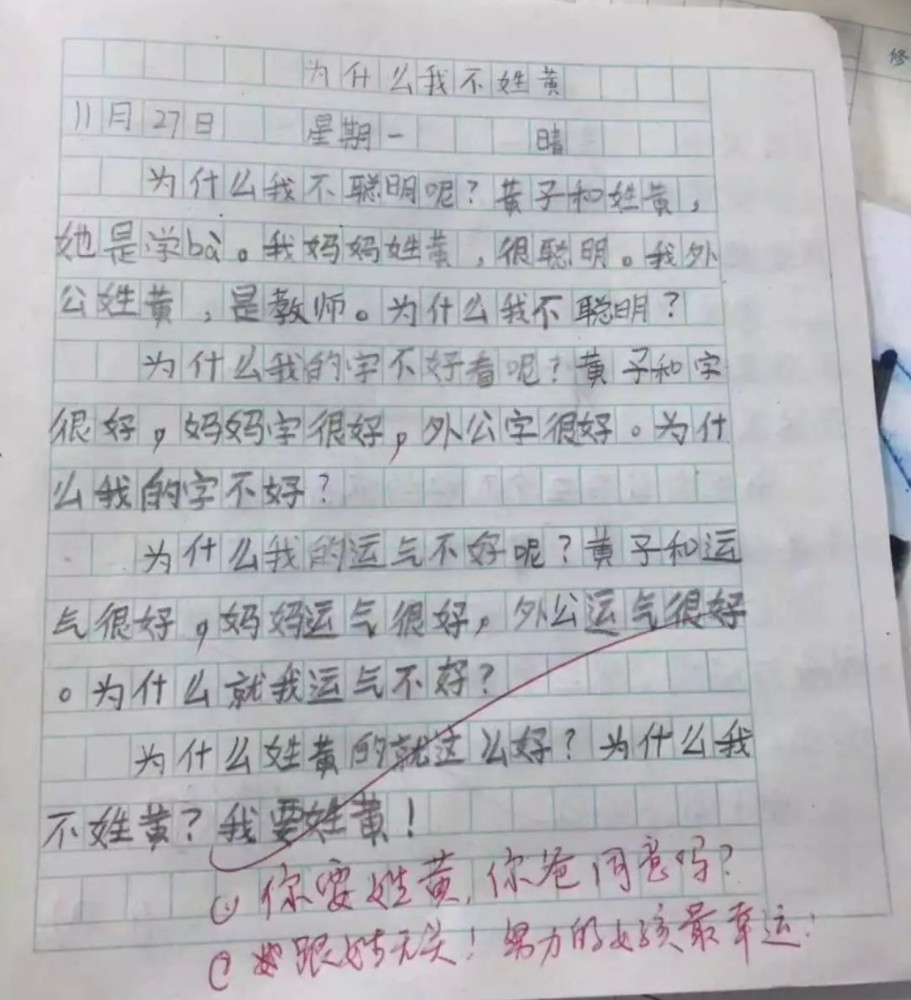 为什么我不姓黄
11月27日 星期一 晴
为什么我不聪明呢？黄子和姓黄，
她是学bà。我妈妈姓黄，很聪明。我外
公姓黄，是教师。为什么我不聪明？
为什么我的字不好看呢？黄子和字
很好，妈妈字很好，外公字很好。为什
么我的字不好？
为什么我的运气不好呢？黄子和运
气很好，妈妈运气很好，外公运气很好
。为什么就我运气不好？
为什么姓黄的就这么好？为什么我
不姓黄？我要姓黄！
你要姓黄，你爸同意吗？
跟姓无关！努力的女孩最幸运！
修